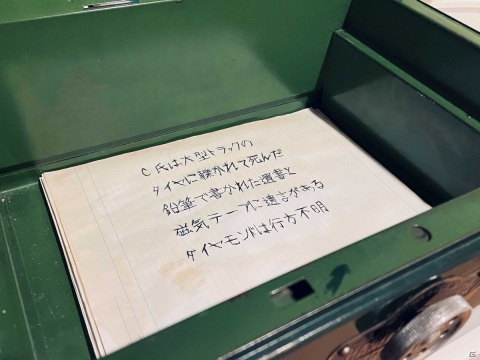 C氏は大型トラックの
タイヤに轢かれて死んだ
鉛筆で書かれた遺書と
磁気テープに遺言がある
ダイヤモンドは行方不明